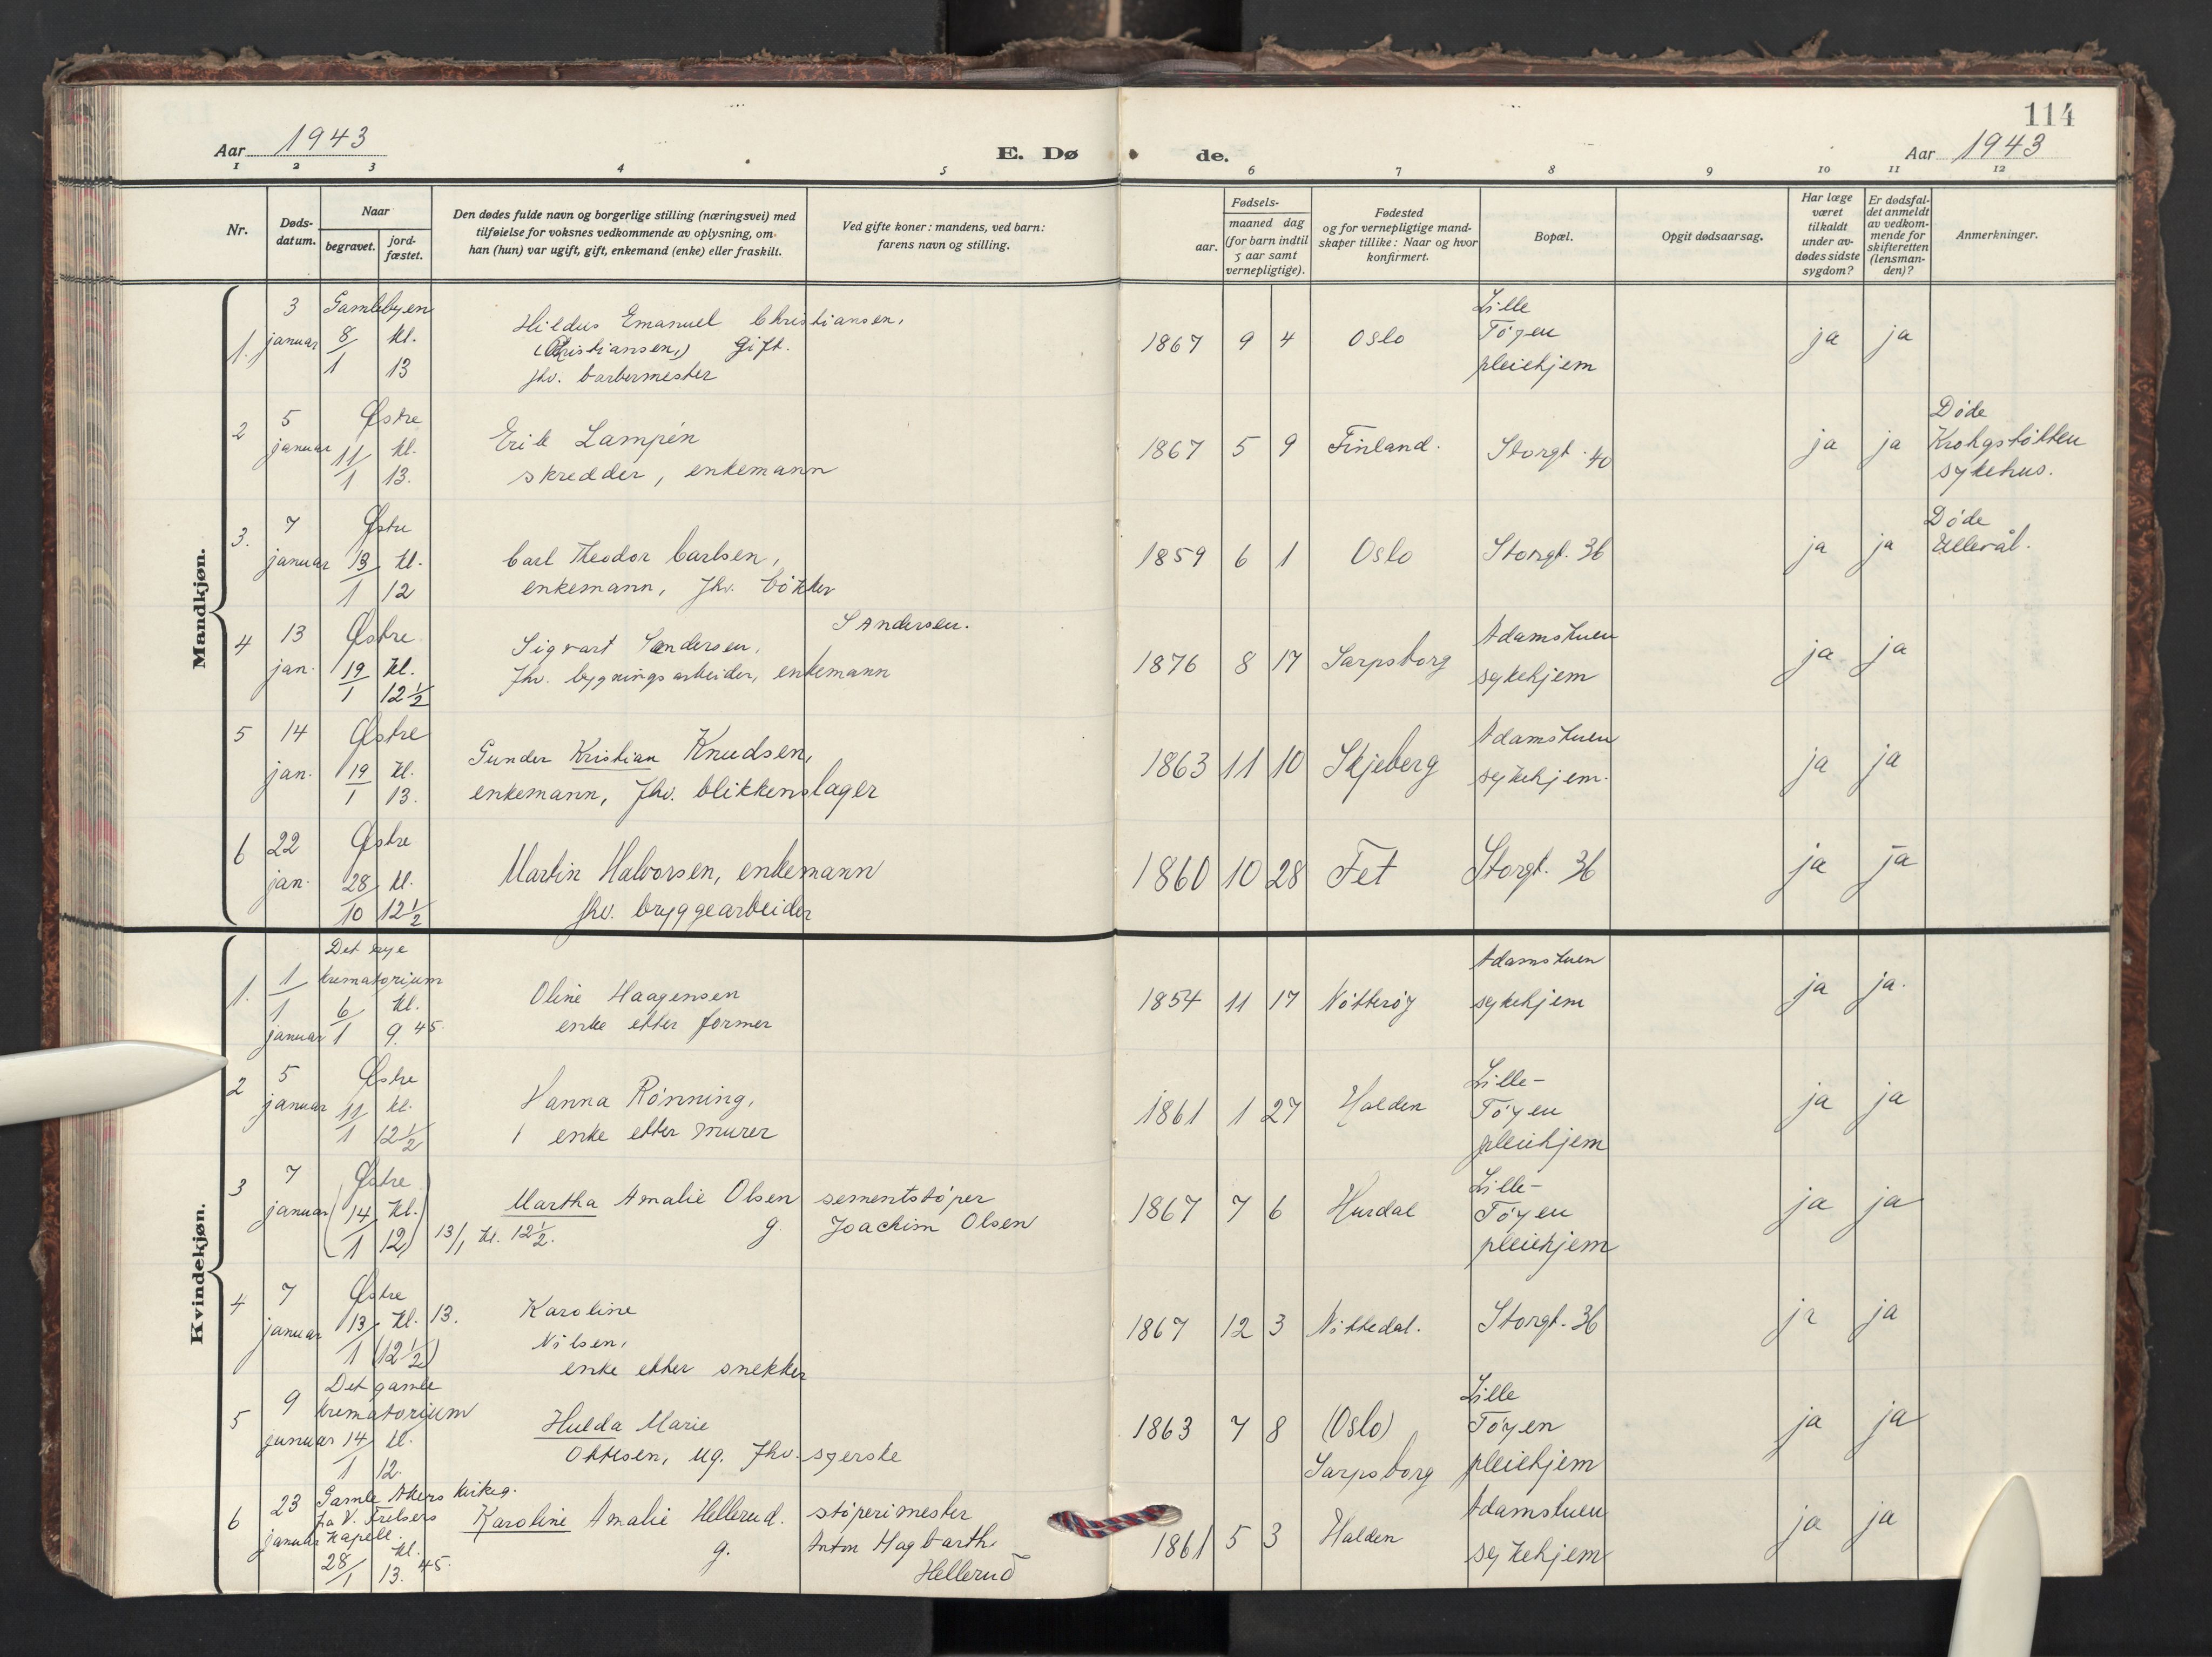 114
Aar 1943
E. Dø
de.
Aar 1943
1 2 3 4 5 6 7 8 9 10 11 12
Nr.
Døds-
datum.
Naar
begravet.
jord-
fæstet.
Den dødes fulde navn og borgerlige stilling (næringsvei) med
tilføielse for voksnes vedkommende av oplysning, om
han (hun) var ugift, gift, enkemand (enke) eller fraskilt.
Ved gifte koner: mandens, ved barn:
farens navn og stilling.
Fødsels-
aar.
maaned dag
(for barn indtil
5 aar samt
vernepligtige).
Fødested
og for vernepligtige mand-
skaper tillike: Naar og hvor
konfirmert.
Bopæl.
Opgit dødsaarsag.
Har læge
været
tilkaldt
under av-
dødes sidste
sygdom?
Er dødsfal-
det anmeldt
av vedkom-
mende for
skifteretten
(lensman-
den)?
Anmerkninger.
Mandkjøn.
1. 3 januar
Gamlebyen
8/1 kl. 13
Hildus Emanuel Christiansen,
(Kristiansen,) gift.
fhv. barbermester
1867 9 4 Oslo
Lille
Tøyen
pleiehjem
ja ja
2 5 januar
Østre
11/1 kl. 13.
Erik Lampén
skredder, enkemann
1867 5 9 Finland. Storgt. 40
ja ja
Døde
Krohgstøtten
sykehus.
3. 7 januar
Østre
13/1 kl. 12
Carl Theodor Carlsen,
enkemann, fhv. bøkker
1859 6 1 Oslo Storgt. 36
ja ja
Døde
Ullevål.
4 13 jan.
Østre
19/1 kl. 12 1/2
Sigvart Sandersen,
S Andersen.
fhv. bygningsarbeider, enkemann
1876 8 17 Sarpsborg
Adamstuen
sykehjem
ja ja
5 14 jan.
Østre
19/1 kl. 13.
Gunder Kristian Knudsen,
enkemann, fhv. blikkenslager
1863 11 10 Skjeberg
Adamstuen
sykehjem.
ja ja
6 22 jan.
Østre
28/10 kl. 12 1/2
Martin Halvorsen, enkemann
fhv. bryggearbeider
1860 10 28 Fet Storgt. 36
ja ja
Kvindekjøn.
1. 1/1 januar
Det nye
krematorium
6/1 kl. 9.45.
Oline Haagensen
enke etter former
1854 11 17 Nøtterøy
Adamstuen
sykehjem
ja ja.
2 5 januar
Østre
11/1 kl. 12 1/2
Hanna Rønning,
enke etter murer
1861 1 27 Halden
Lille-
Tøyen
pleiehjem
ja ja
3 7 januar
Østre
(14/1 kl. 12) 13/1 kl. 12 1/2.
Martha Amalie Olsen
g.
sementstøper
Joachim Olsen
1867 7 6 Hurdal
Lille-
Tøyen
pleiehjem
ja ja
4 7 januar
Østre
13/1 kl. 13.
(12 1/2)
Karoline
Nilsen,
enke etter snekker
1867 12 3 Nittedal. Storgt. 36
ja ja
5 9 januar
Det gamle
krematorium
14/1 kl. 12.
Hulda Marie
Ottesen, ug. fhv. syerske
1863 7 8 (Oslo)
Sarpsborg
Lille
Tøyen
pleiehjem
ja ja
6 23 januar
Gamle Akers kirkeg.
fra V. Frelsers
kapell.
28/1 kl. 13.45.
Karoline Amalie Hellerud.
g.
støperimester
Anton Hagbarth
Hellerud
1861 5 3 Halden
Adamstuen
sykehjem
ja ja